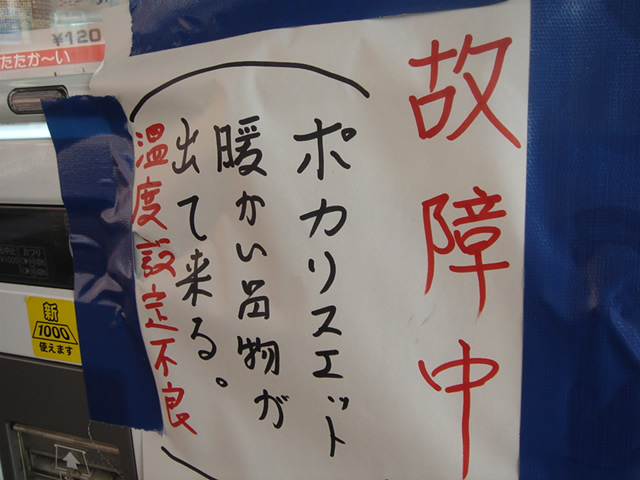 故障中
ポカリスエット
暖かい品物が
出て来る。
温度設定不良
¥120
たたか〜い
新
1000
使えます